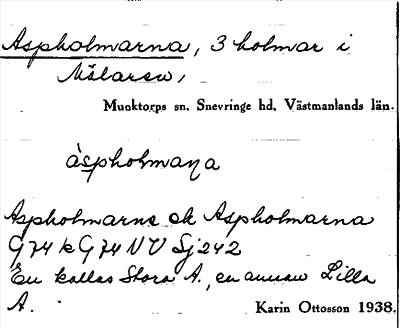 Aspholmarna, 3 holmar i
Mälaren,
Munktorps sn, Snevringe hd, Västmanlands län.
àspholmaṇa
Aspholmarne ek Aspholmarna
G 74 k G 74 NV Sj 242
En kallas Stora A., en annan Lilla
A.
Karin Ottosson 1938.